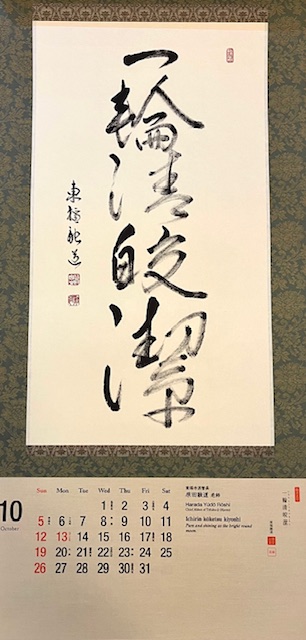 一輪清皎潔
東福融道
10
October
Sun Mon Tue Wed Thu Fri Sat
1 2 3 4
5 6 7 8 9 10 11
12 13 14 15 16 17 18
19 20 21 22 23 24 25
26 27 28 29 30 31
原田融道 老師
Harada Yūdō Rōshi
Ichirin kōketsu kiyoshi
Pure and shining as the bright round moon.
一輪清皎潔